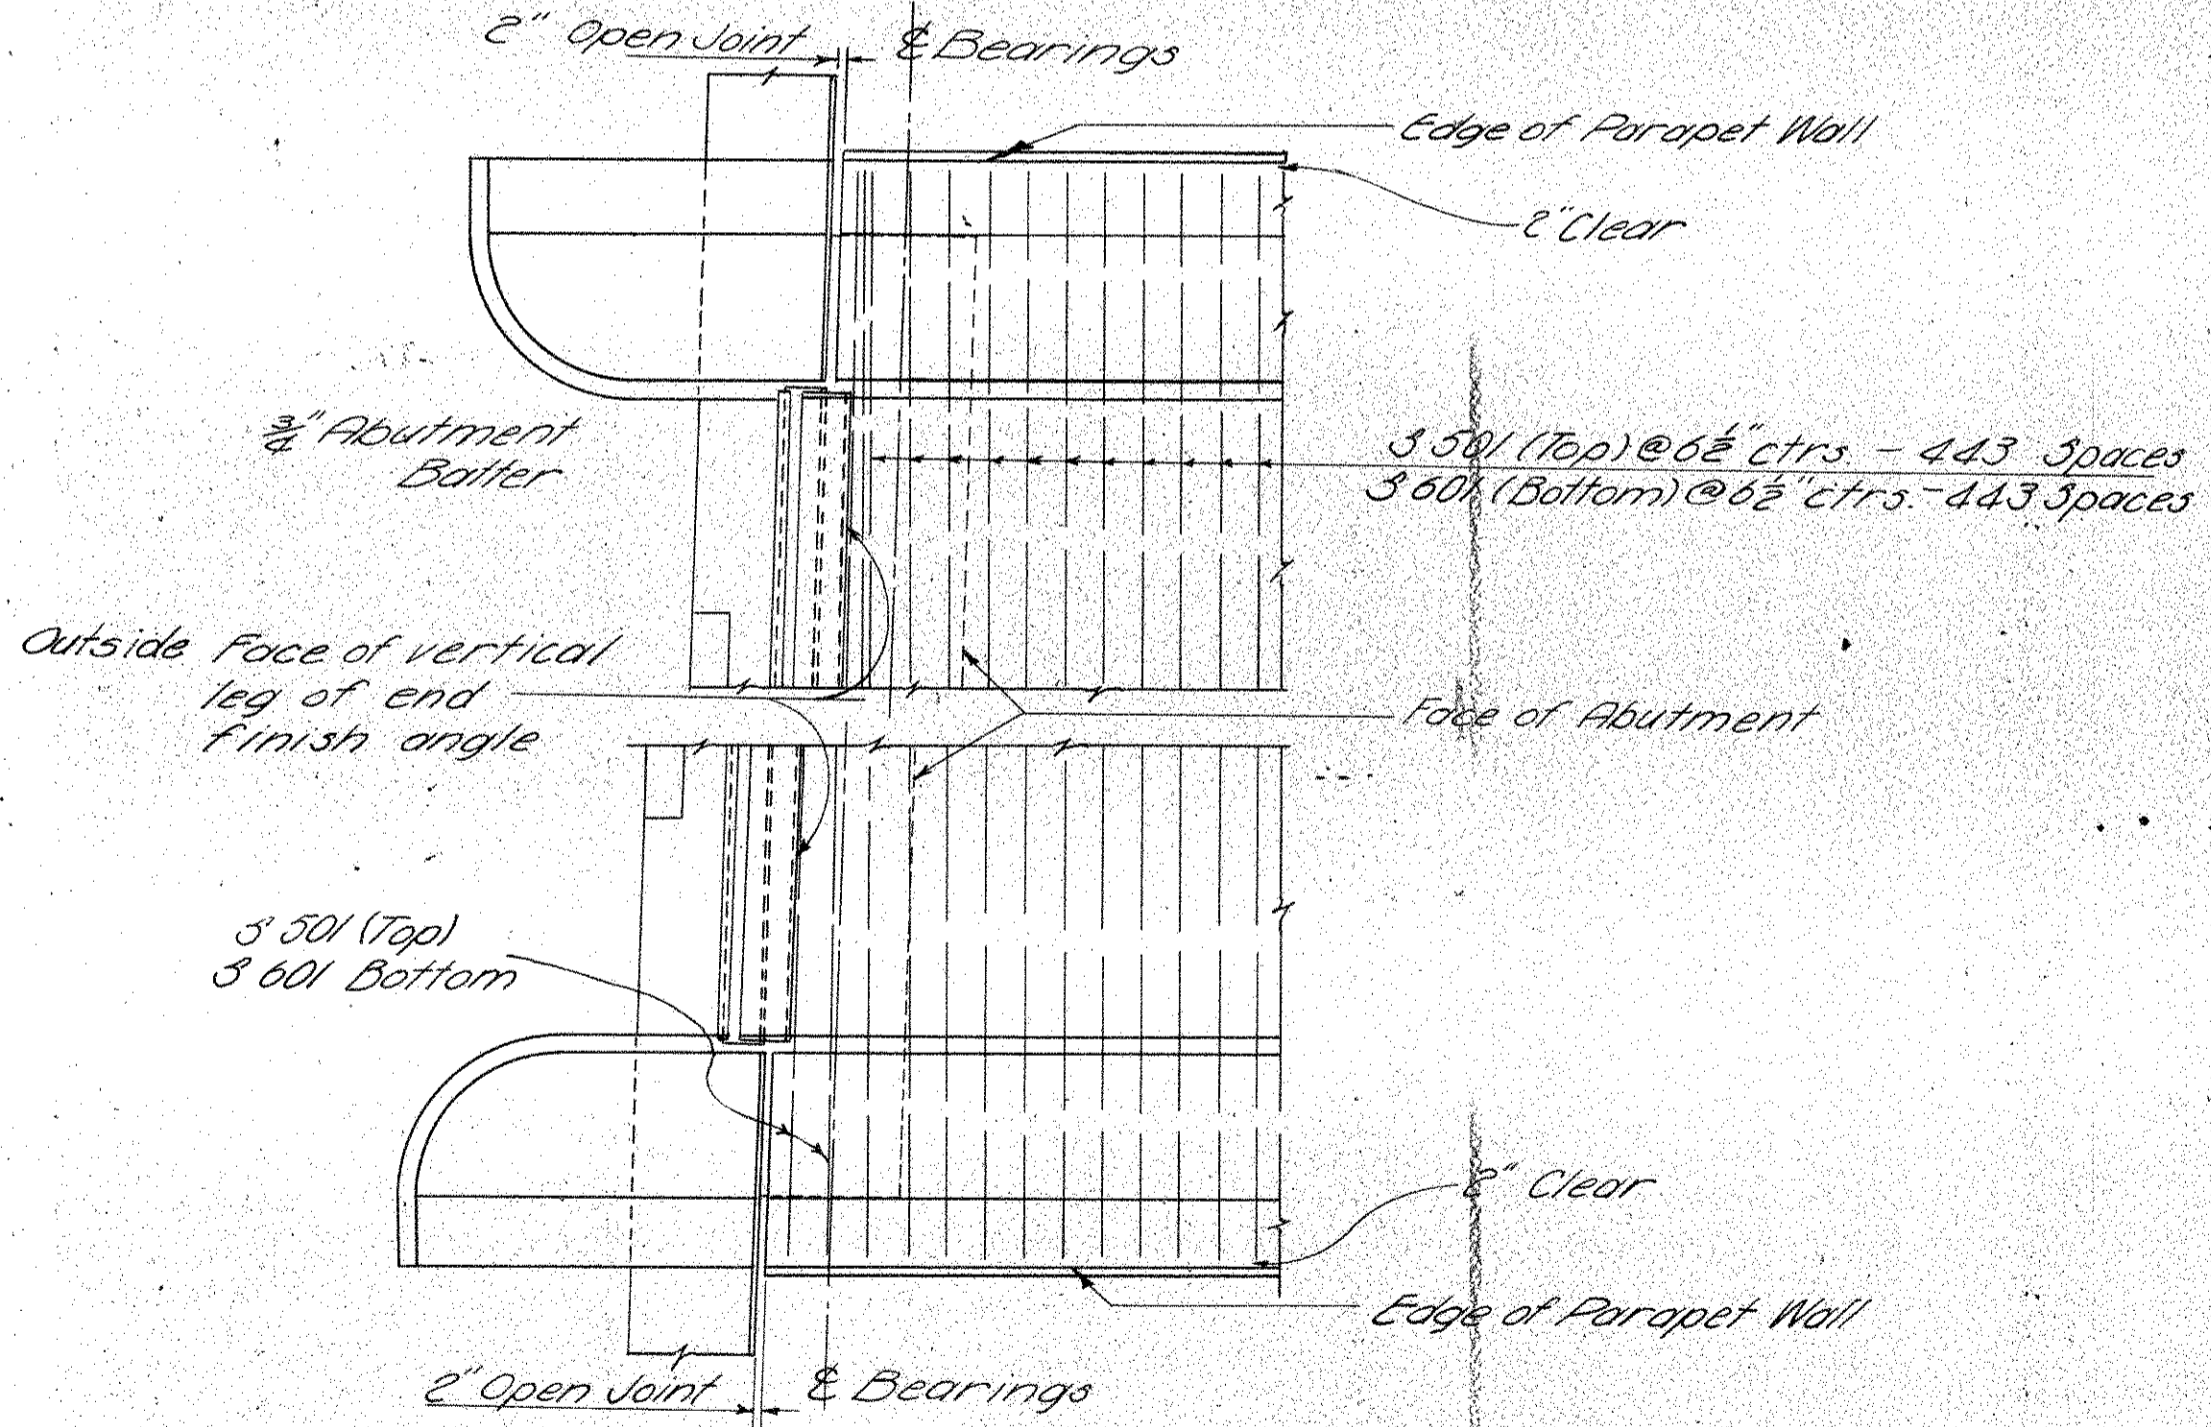 2" Open Joint
℄ Bearings
Edge of Parapet Wall
2" Clear
3/4" Abutment
Batter
S 501 (Top) @ 6 1/2" ctrs. - 443 Spaces
S 601 (Bottom) @ 6 1/2" ctrs. - 443 Spaces
Outside Face of vertical
leg of end
finish angle
Face of Abutment
S 501 (Top)
S 601 Bottom
2" Clear
Edge of Parapet Wall
2" Open Joint
℄ Bearings